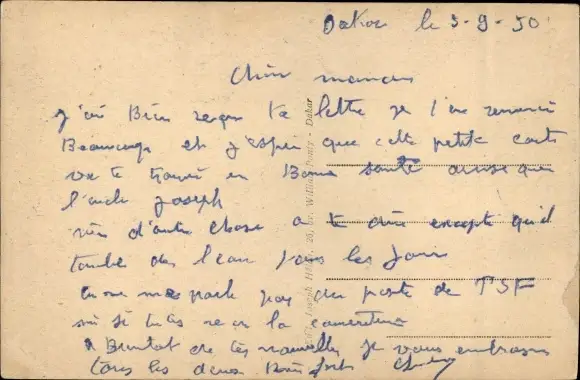 Dakar le 5-9-50
Chère maman
J'ai Bien reçu ta lettre je t'en remerci
Beaucoup et j'esper que cette petite carte
va te trouvé en Bonne santé ainsi que
l'oncle joseph
rien d'autre chose a te dire excepté qu'il
tombe de l'eau tous les jours
on ne me parle pas du poste de TSF
ni si tu as reçu la
A Bientot de tes nouvelles je vous embrasse
tous les deux Bien fort
William Ponty - Dakar